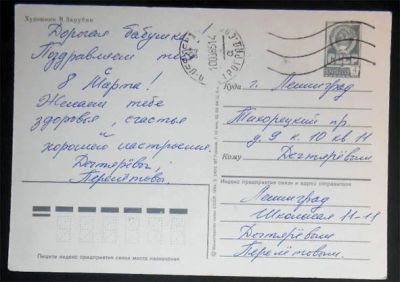 Художник В. Зарубин
Дорогая бабушка!
Поздравляем те
8 Марта!
Желаем тебе
здоровья, счастья
и
хорошего настроения.
Дегтярёвы,
Перлётовы.
Куда г. Ленинград
Тихорецкий пр
д. 9 к. 10 кв 11
Кому Дегтярёвым
Индекс предприятия связи и адрес отправителя
Ленинград
Школьная
Дегтярёвы
Перлётовы.
Пишите индекс предприятия связи места назначения